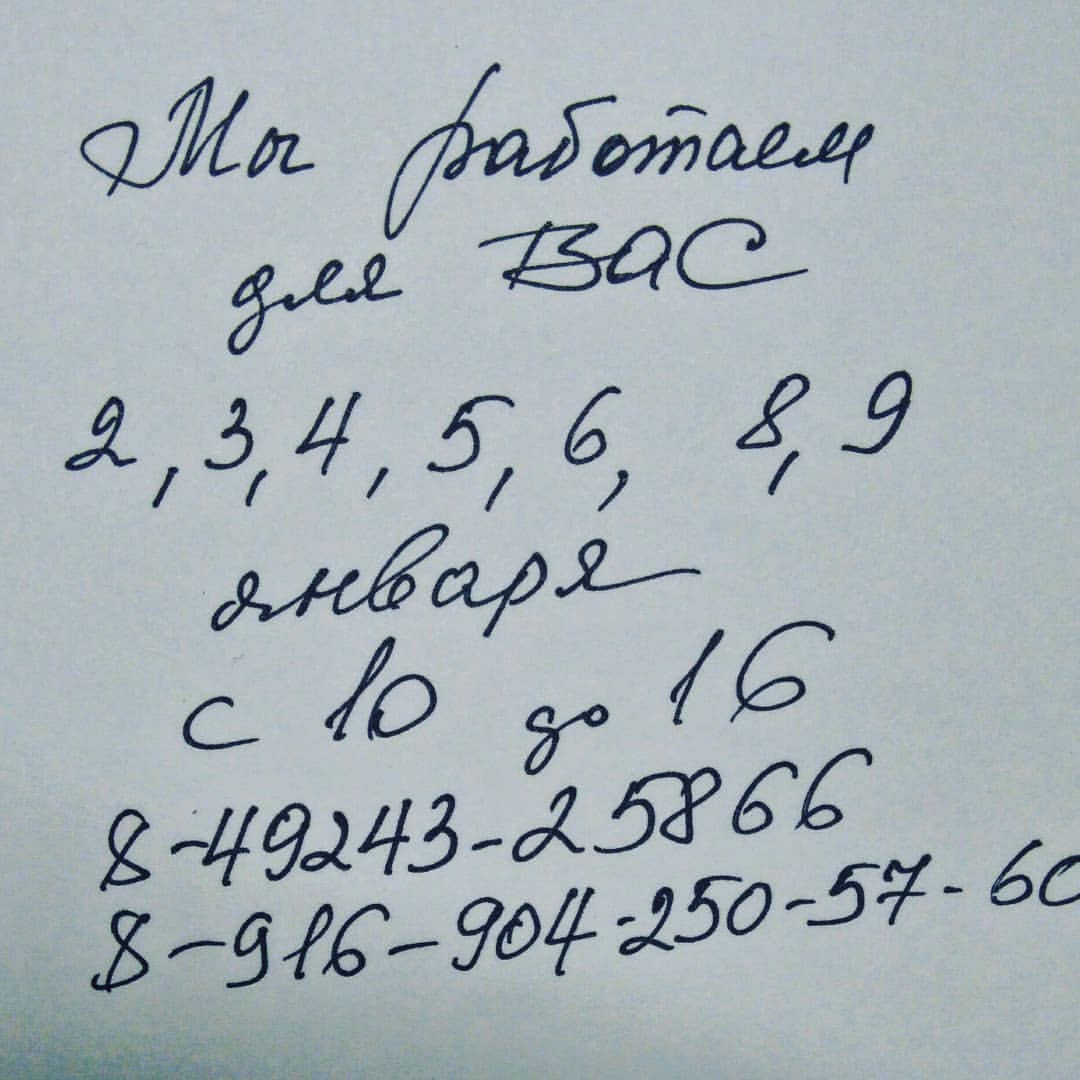 Мы работаем
для ВАС
2, 3, 4, 5, 6, 8, 9
января
с 10 до 16
8-49243-25866
8-916-904-250-57-60